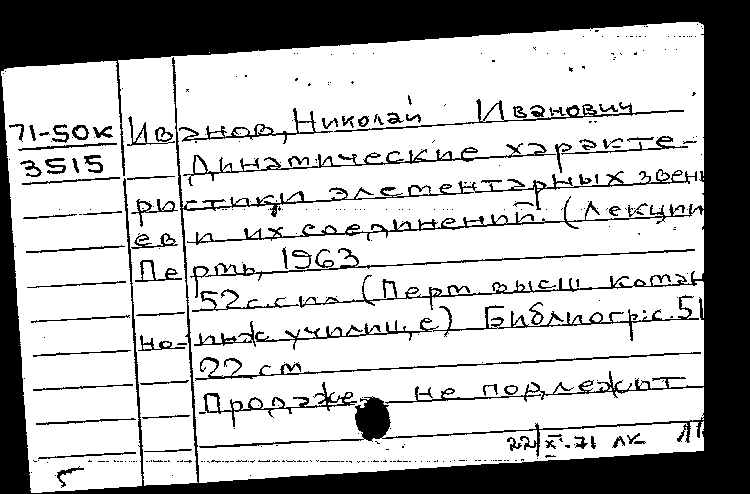 71-50к Иванов, Николай Иванович
3515 Динамические характе-
ристики элементарных звень
ев и их соединений. (Лекции
Пермь, 1963.
52 с. с ил. (Перм. высш. коман
но-инж. училище) Библиогр: с. 51
22 см.
Продаже не подлежит.
22/XI-71 ЛК